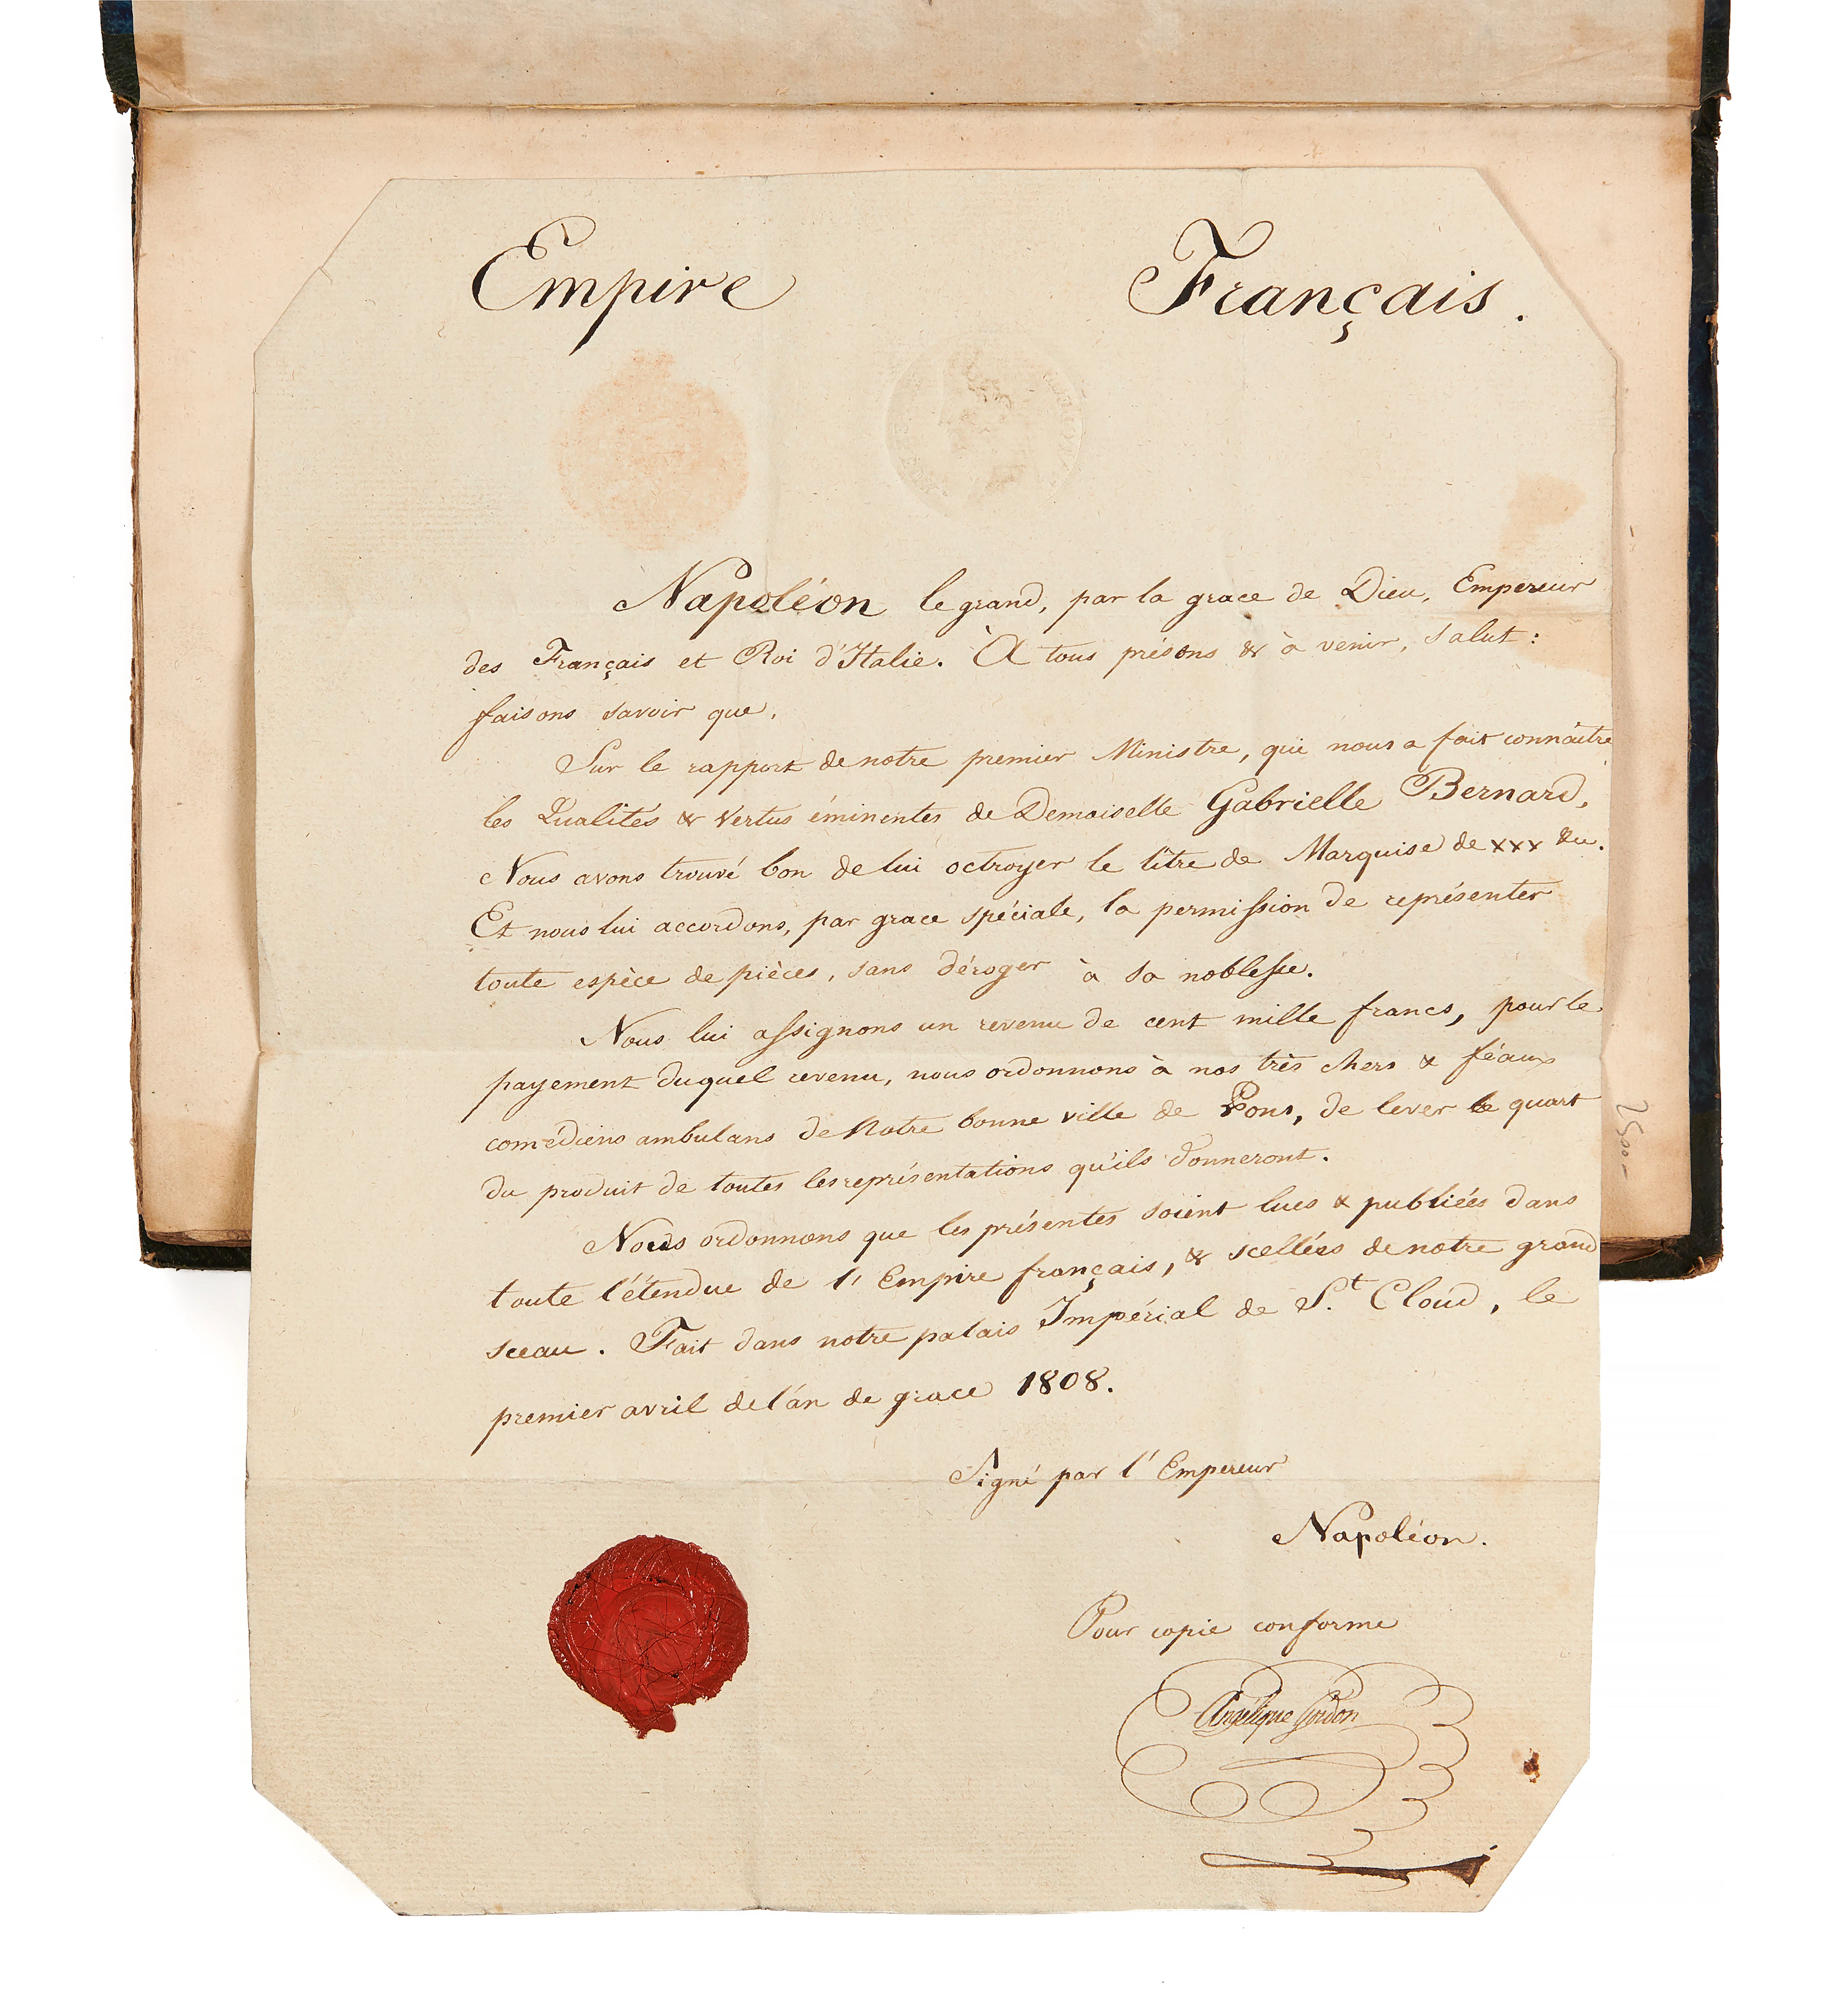 Empire Français.
Napoléon le grand, par la grace de Dieu, Empereur
des Français et Roi d'Italie. À tous présens & à venir, Salut:
faisons savoir que,
Sur le rapport de notre premier Ministre, qui nous a fait connaître
les Qualités & Vertus éminentes de Demoiselle Gabrielle Bernard,
Nous avons trouvé bon de lui octroyer le titre de Marquise de xxx &u.
Et nous lui accordons, par grace spéciale, la permission de représenter
toute espèce de pièces, sans déroger à sa noblesse.
Nous lui assignons un revenu de cent mille francs, pour le
payement duquel revenu, nous ordonnons à nos très chers & féaux
comédiens ambulans de Notre bonne ville de Pons, de lever le quart
du produit de toutes les représentations qu'ils donneront.
Nous ordonnons que les présentes soient lues & publiées dans
toute l'étendue de l'Empire français, & scellées de notre grand
sceau. Fait dans notre palais Impérial de S.t Cloud, le
premier avril de l'an de grace 1808.
Signé par l'Empereur
Napoléon.
Pour copie conforme
Angélique Gordon
2500-